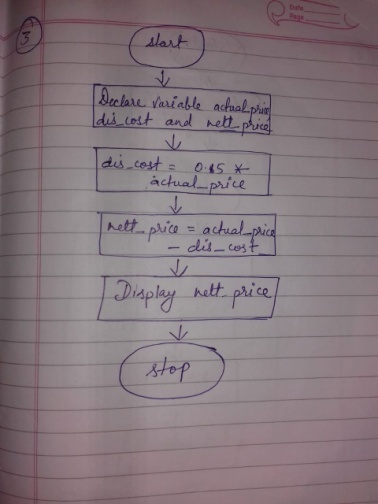 Date
Page
3
start
Declare variable actual_price
dis_cost and nett_price
dis_cost = 0.15 *
actual_price
nett_price = actual_price
- dis_cost
Display nett_price
stop